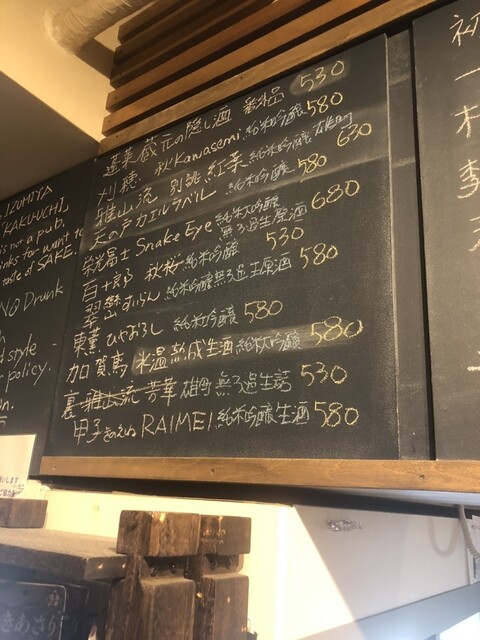 IZUMIYA
KAKUUCHI
is not a pub.
want to
taste of SAKE.
NO Drunk
style
policy.
蓬莱 蔵元の隠し酒 番外品 530
刈穂 秋Kawasemi 純米吟醸 580
雅山流 別誂 紅葉 純米吟醸 630
天の戸 カエルラベル 純米吟醸 580
栄光冨士 Snake Eye 純米大吟醸 無ろ過生原酒 680
百十郎 秋桜 純米吟醸 530
翠巒 すいらん 純米吟醸無ろ過生原酒 580
東薫 ひやおろし 純米吟醸 580
加賀鳶 氷温熟成生酒 純米大吟醸 580
裏・雅山流 芳華 雄町 無ろ過生詰 530
甲子 きのえね RAIMEI 純米吟醸生酒 580
初
一
李
きあさり